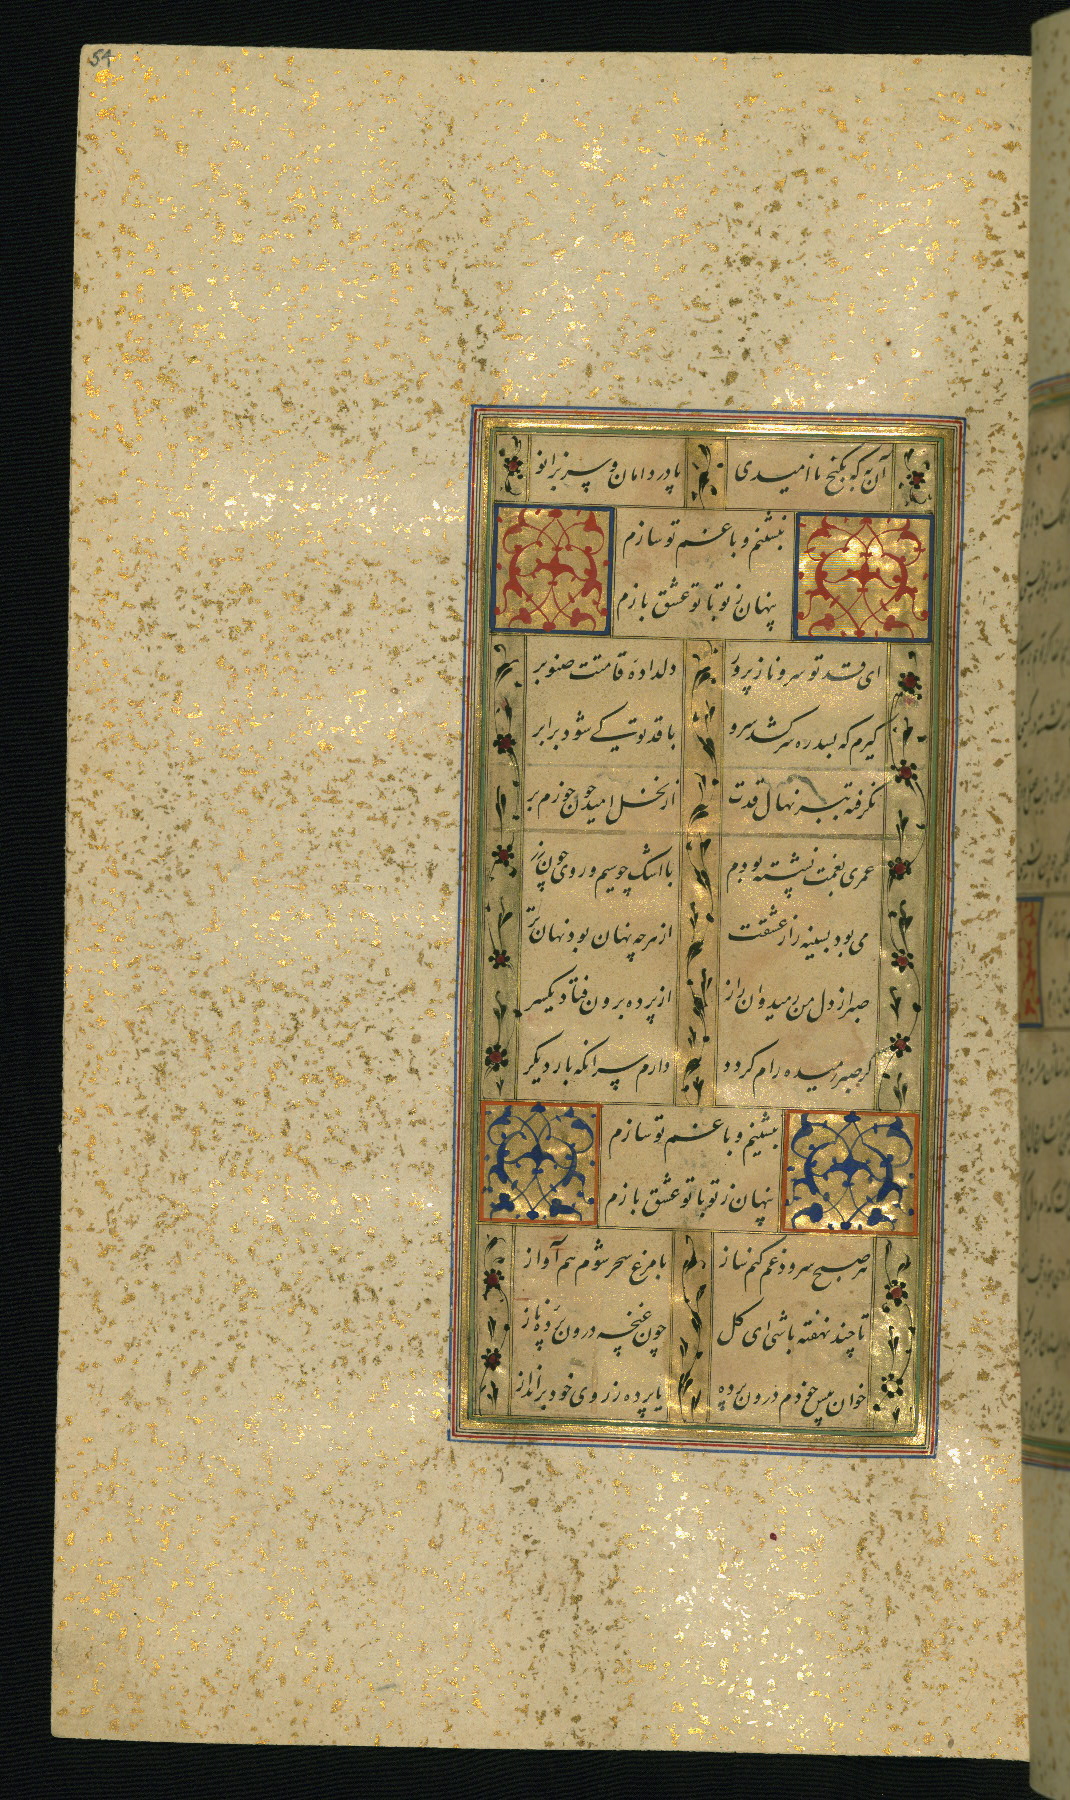 54
آن به که بکنج ناامیدی پا در دامان و سر بزانو
بنشینم و با غم تو سازم
پنهان ز تو با تو عشق بازم
ای قد تو سرو نازپرور دلداده قامتت صنوبر
گیرم که بسدره سر کشد سرو با قد تو کی شود برابر
نگرفته تبر نهال قدت از نخل امید چون خورم بر
عمری بغمت نشسته بودم با اشک چو سیم و روی چون زر
می بود بسینه راز عشقت از هر چه نهان بود نهان تر
صبر از دل من رمید وان راز از پرده برون فتاد یکسر
گر صبر رمیده رام گردد دارم سر انکه بار دیگر
بنشینم و با غم تو سازم
پنهان ز تو با تو عشق بازم
هر صبح سرود غم کنم ساز با مرغ سحر شوم هم آواز
تا چند نهفته باشی ای گل چون غنچه درون پرده ناز
خوان پس خودم درون پرده یا پرده ز روی خود برانداز